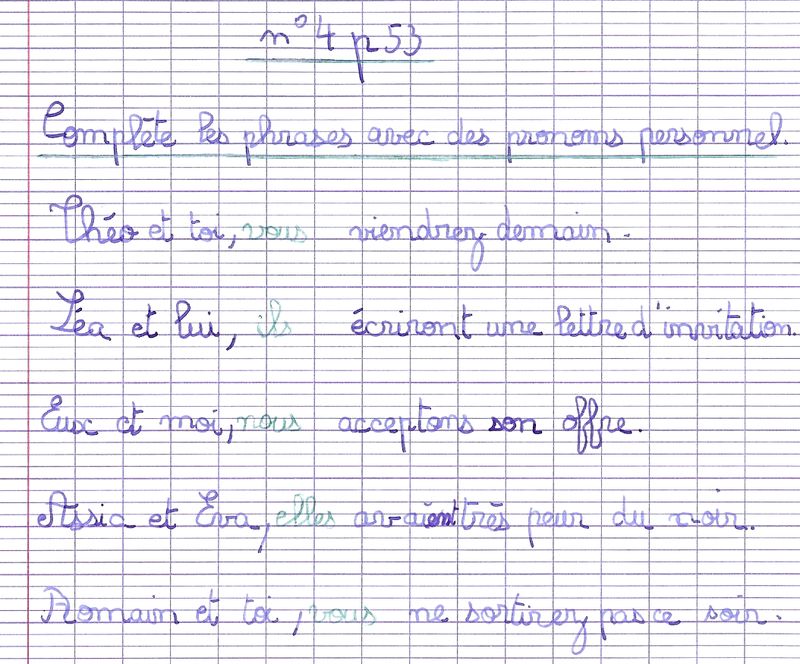 n° 4 p 53
Complète les phrases avec des pronoms personnel.
Théo et toi, vous viendrez demain.
Léa et lui, ils écriront une lettre d'invitation.
Eux et moi, nous acceptons son offre.
Assia et Eva, elles avaient très peur du noir.
Romain et toi, vous ne sortirez pas ce soir.